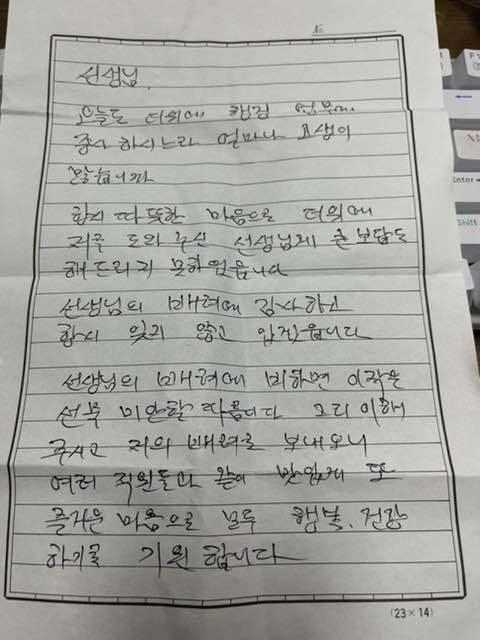 No.
선생님.
오늘도 더위에 행정 업무에
종사 하시느라 얼마나 고생이
많습니까
항시 따뜻한 마음으로 더위에
저를 도와 주신 선생님께 큰 보답도
해 드리지 못하였읍니다
선생님의 배려에 감사하고
항시 잊지 않고 있겠읍니다
선생님의 배려에 비하면 이 작은
선물 미안할 따름이다 그리 이해
주시고 저의 배려로 보내오니
여러 직원들과 같이 맛있게 또
즐거운 마음으로 모두 행복, 건강
하기를 기원 합니다
(23×14)
Enter
Shift